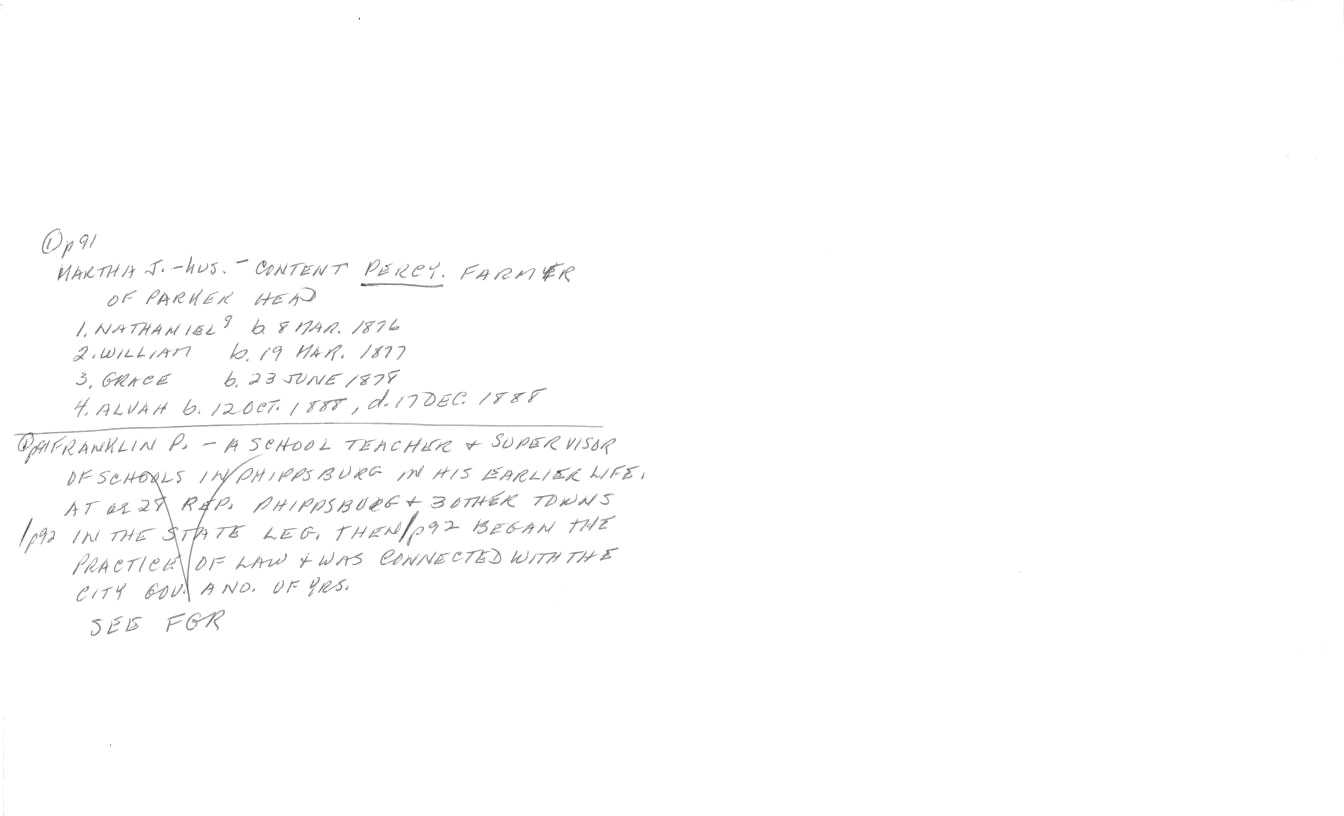 ① p91
MARTHA J. - hus. - CONTENT PERCY. FARMER
OF PARKER HEAD
1. NATHANIEL⁹ b 8 MAR. 1876
2. WILLIAM b. 19 MAR. 1877
3. GRACE b. 23 JUNE 1878
4. ALVAH b. 12 OCT. 1888, d. 17 DEC. 1888
① p91 FRANKLIN P. - A SCHOOL TEACHER + SUPERVISOR
OF SCHOOLS IN PHIPPSBURG IN HIS EARLIER LIFE.
AT 28 REP. PHIPPSBURG + 3 OTHER TOWNS
/p92 IN THE STATE LEG. THEN /p92 BEGAN THE
PRACTICE OF LAW + WAS CONNECTED WITH THE
CITY GOV. A NO. OF YRS.
SEE FGR